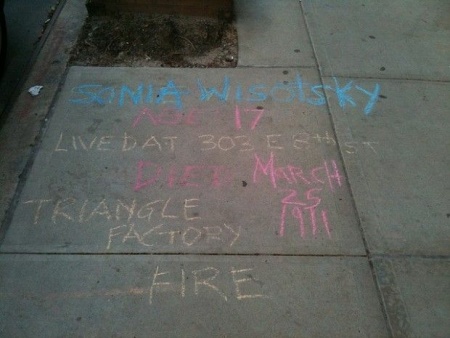 SONIA WISOTSKY
AGE 17
LIVED AT 303 E 8th ST
DIED MARCH
25
1911
TRIANGLE
FACTORY
FIRE